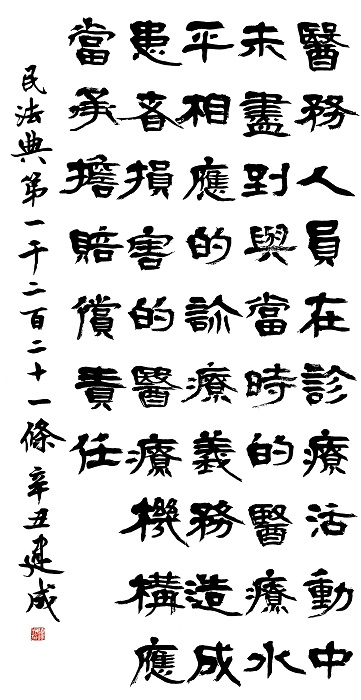 醫務人員在診療活動中
未盡到與當時的醫療水
平相應的診療義務造成
患者損害的醫療機構應
當承擔賠償責任
民法典第一千二百二十一條辛丑建成